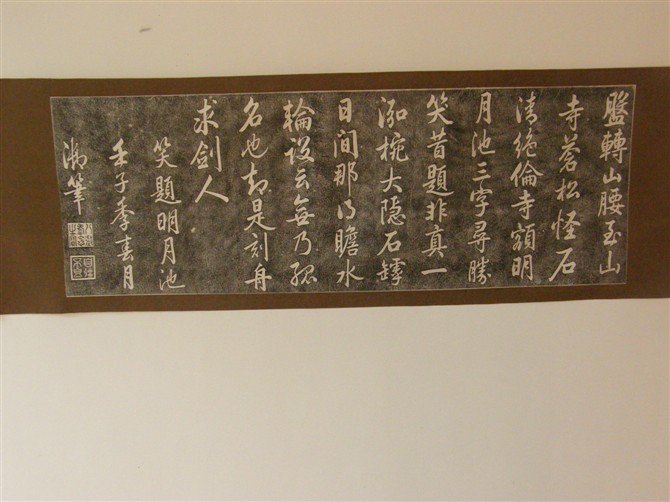 盤轉山腰至山
寺蒼松怪石
清絕倫寺額明
月池三字尋勝
笑昔題非真一
泓椀大隱石罅
日間那得瞻水
輪設云無乃孤
名也却是刻舟
求劍人
笑題明月池
壬子季春月
御筆
自強不息